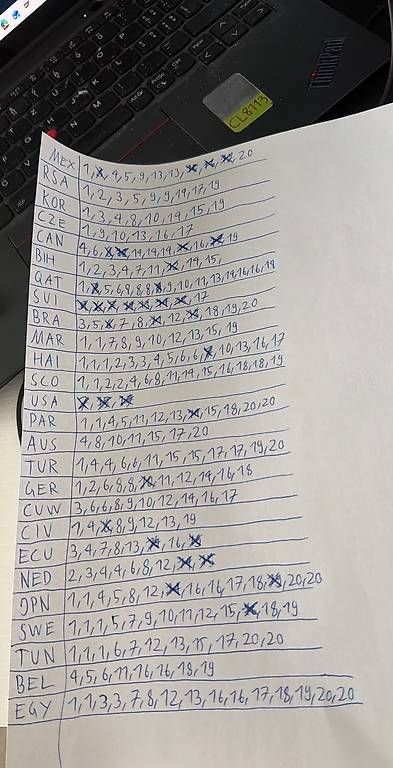 ThinkPad
CL8113
MEX 1, 4, 5, 9, 13, 13, 20
RSA 1, 2, 3, 5, 9, 9, 14, 17, 19
KOR 1, 3, 4, 8, 10, 14, 15, 19
CZE 1, 9, 10, 13, 16, 17
CAN 4, 6, 14, 14, 14, 16, 19
BIH 1, 2, 3, 4, 7, 11, 14, 15,
QAT 1, 5, 6, 8, 8, 8, 9, 10, 11, 13, 14, 16, 16, 19
SUI 17
BRA 3, 5, 7, 8, 12, 18, 19, 20
MAR 1, 1, 7, 8, 9, 10, 12, 13, 15, 19
HAI 1, 1, 1, 2, 3, 3, 4, 5, 6, 6, 10, 13, 16, 17
SCO 1, 1, 2, 2, 4, 6, 8, 11, 14, 15, 16, 18, 18, 19
USA
PAR 1, 1, 4, 5, 11, 12, 13, 15, 18, 20, 20
AUS 4, 8, 10, 11, 15, 17, 20
TUR 1, 4, 4, 6, 6, 11, 15, 15, 17, 17, 19, 20
GER 1, 2, 6, 8, 8, 11, 12, 14, 16, 18
CUW 3, 6, 6, 8, 9, 10, 12, 14, 16, 17
CIV 1, 4, 8, 9, 12, 13, 19
ECU 3, 4, 7, 8, 13, 16
NED 2, 3, 4, 4, 6, 8, 12
JPN 1, 1, 4, 5, 8, 12, 16, 16, 17, 18, 20, 20
SWE 1, 1, 1, 5, 7, 9, 10, 11, 12, 15, 18, 19
TUN 1, 1, 1, 6, 7, 12, 13, 15, 17, 20, 20
BEL 4, 5, 6, 11, 16, 16, 18, 19
EGY 1, 1, 3, 3, 7, 8, 12, 13, 16, 16, 17, 18, 19, 20, 20